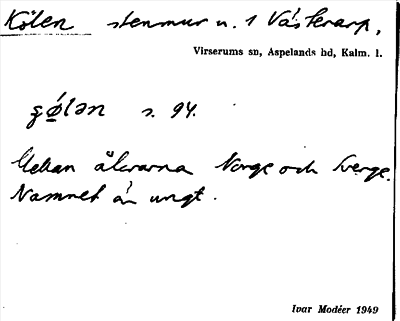 Kölen stenmur u. 1 Väskrarp,
Virserums sn, Aspelands hd, Kalm. l.
s. 94.
Mellan åkrarna Norge och Sverge.
Namnet är ungt.
Ivar Modéer 1949